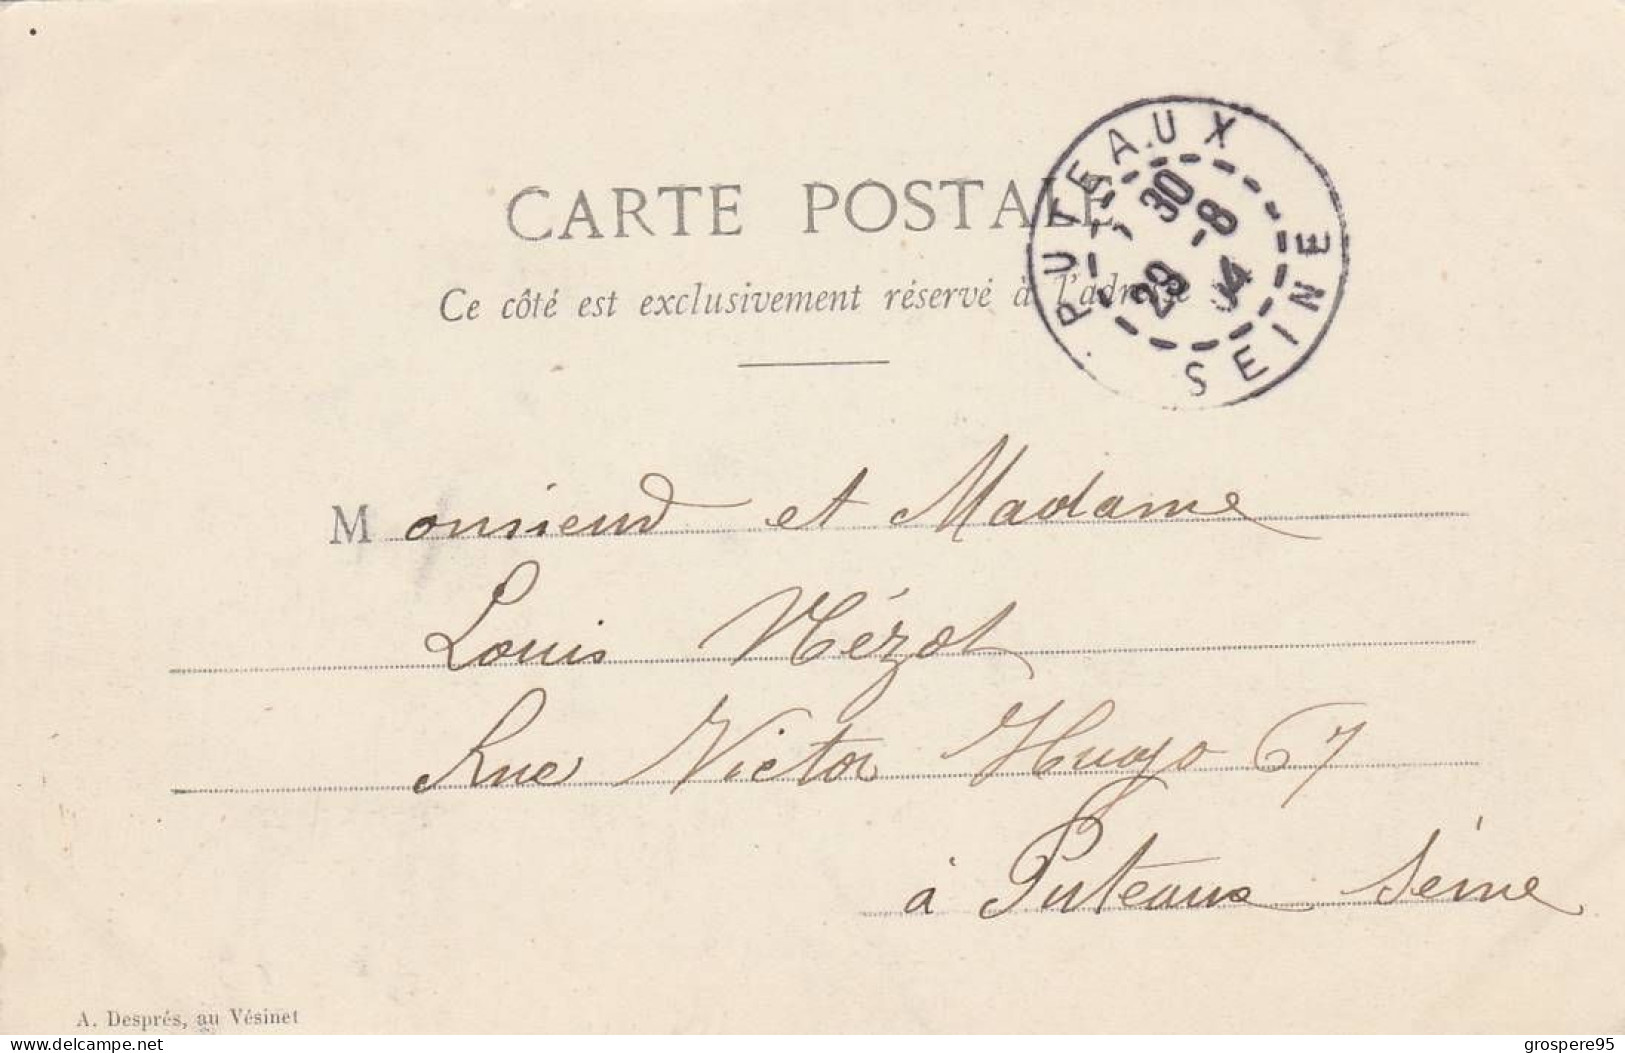 CARTE POSTALE
Ce côté est exclusivement réservé à l'adresse
PUTEAUX
30
29 -8
SEINE
Monsieur et Madame
Louis Mézot
Rue Victor Hugo 67
à Puteaux Seine
A. Després, au Vésinet
delcampe.net
grospere95